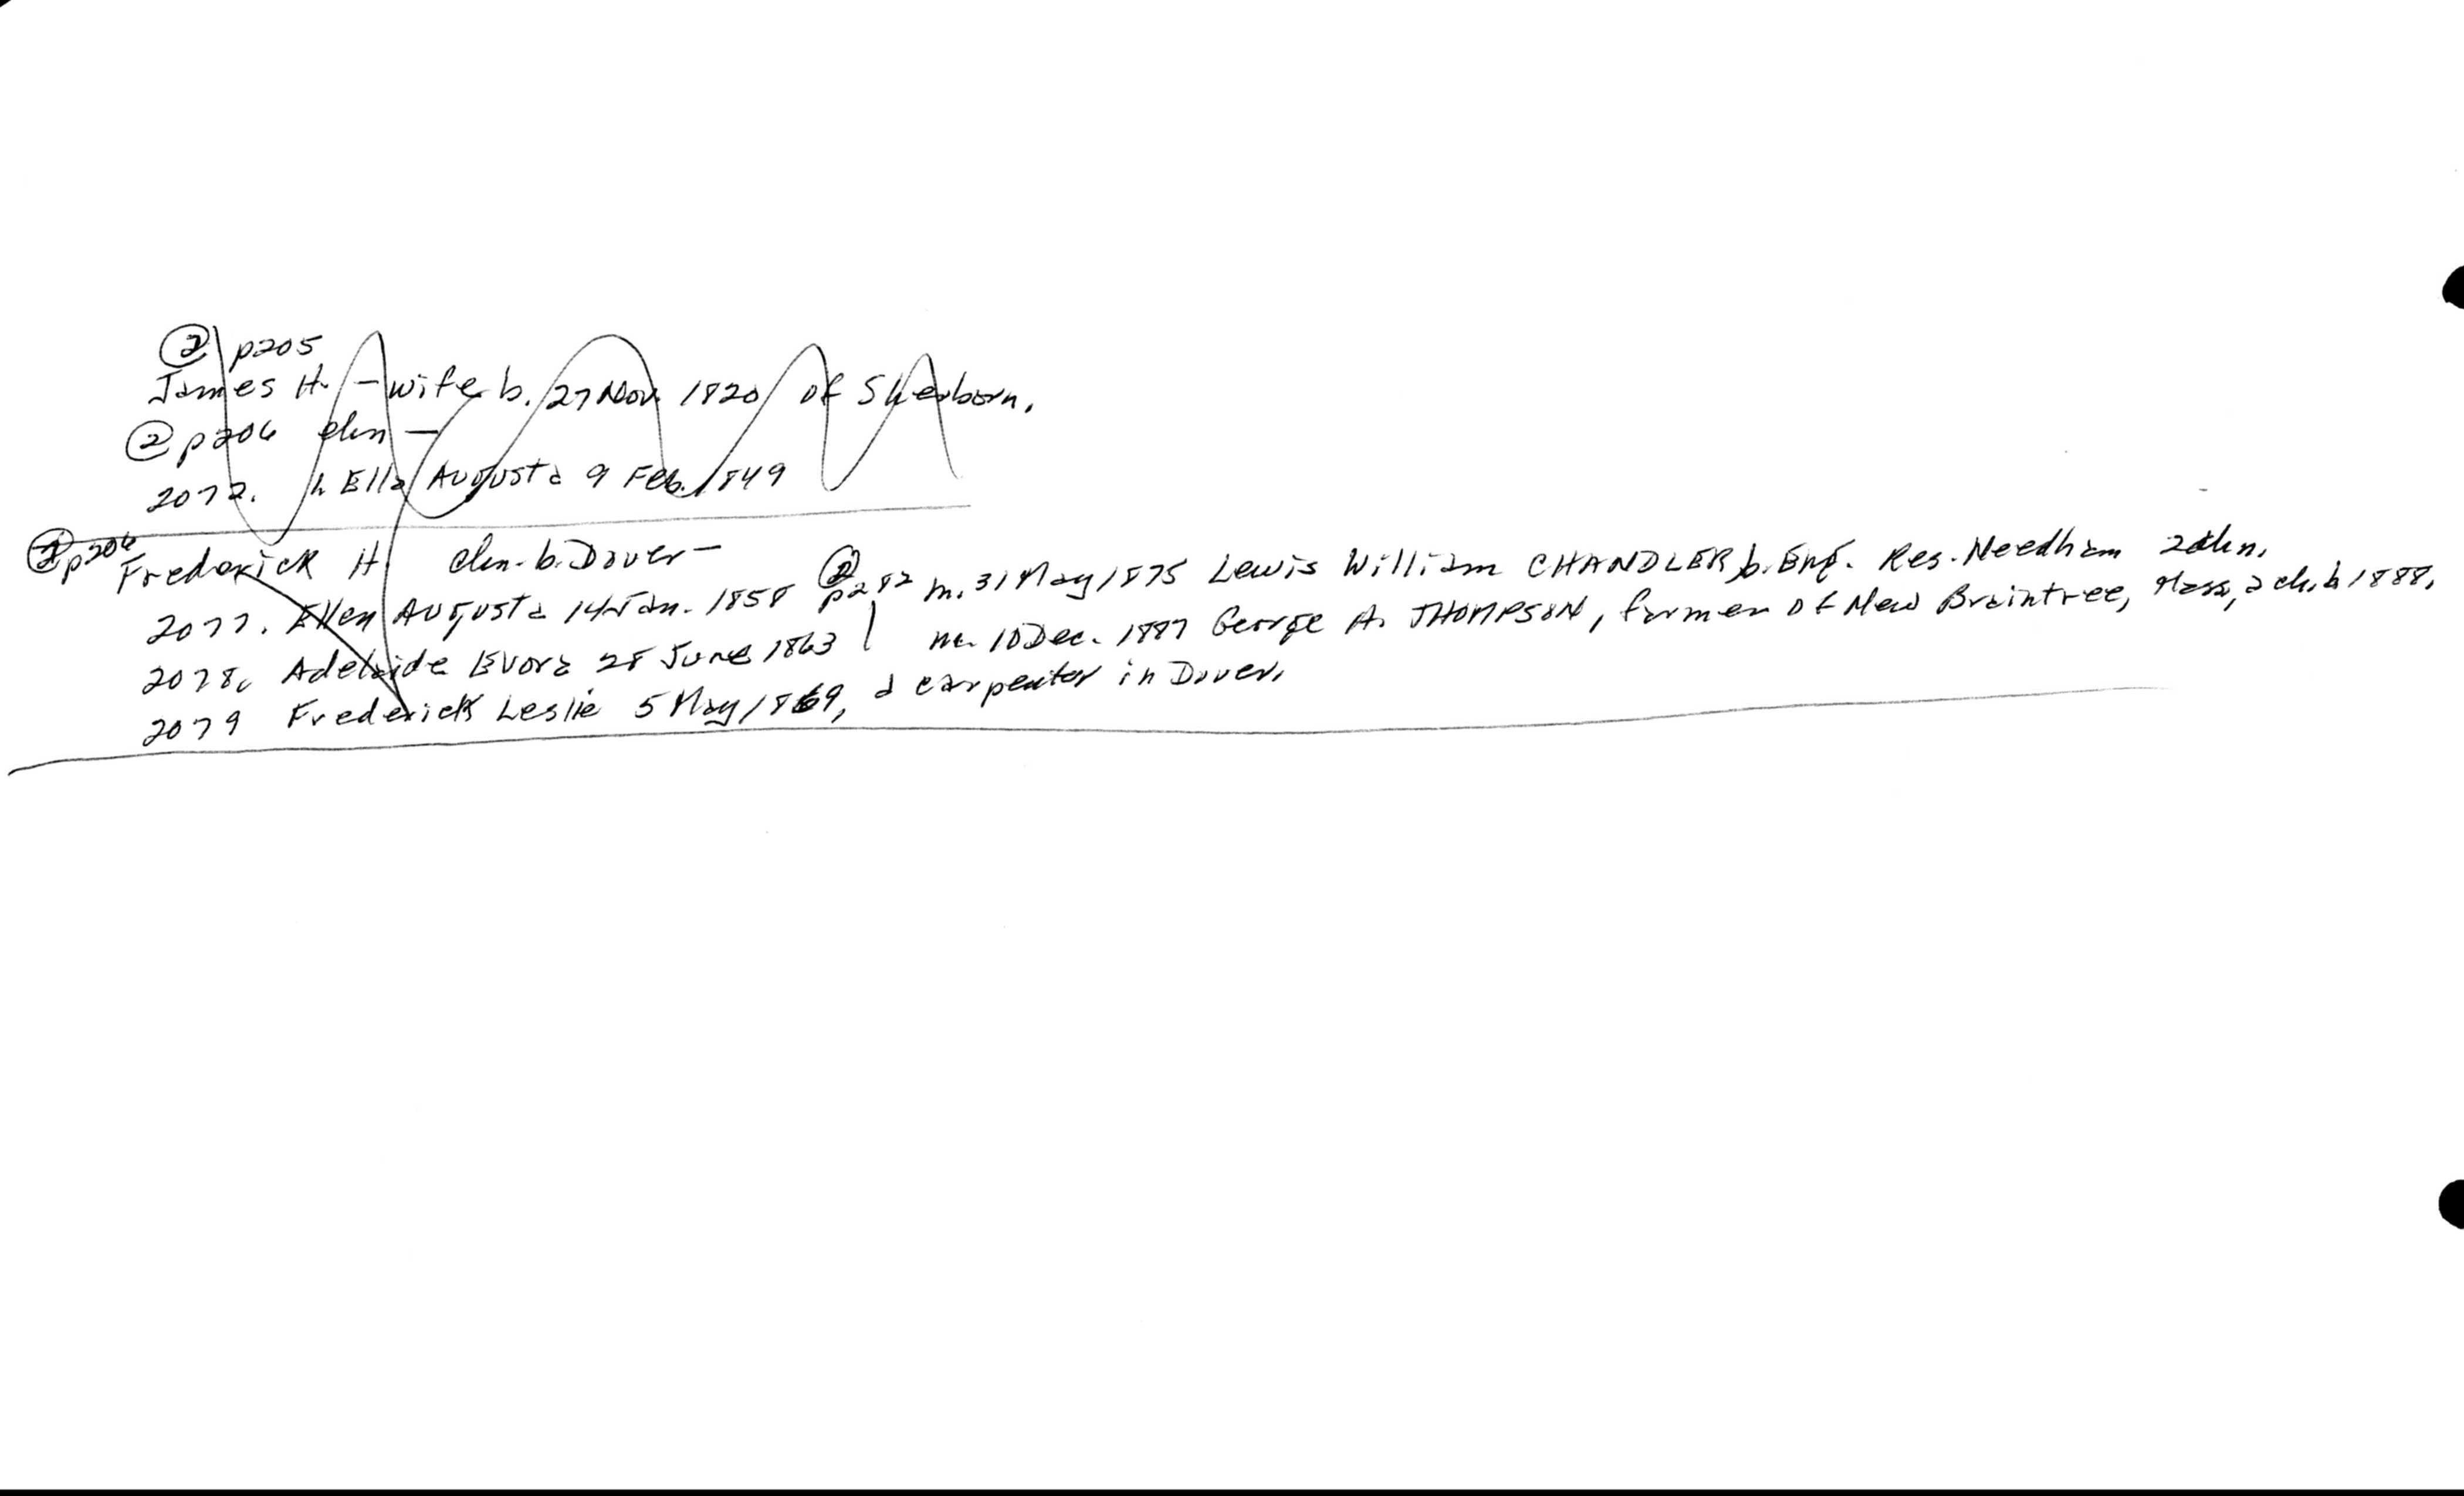 ② p205
James H. – wife b. 27 Nov. 1820 of Sherborn.
② p206 chn –
2072. h Ella Augusta 9 Feb. 1849
② p206
Frederick H. chn. b. Dover –
2077. Ellen Augusta 14 Jan. 1858 ② p282 m. 31 May 1875 Lewis William CHANDLER b. Eng. Res. Needham 2chn.
2078. Adelaide Evora 28 June 1863 m. 10 Dec. 1887 George A. THOMPSON, farmer of New Braintree, Mass, a ch. b 1888.
2079 Frederick Leslie 5 May 1869, a carpenter in Dover.